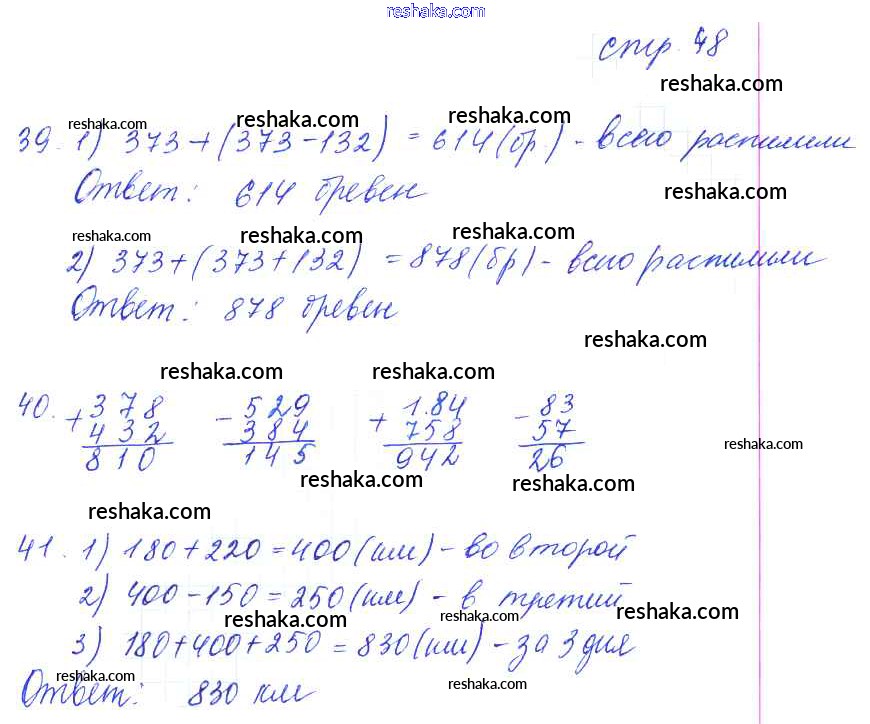 reshaka.com
стр. 48
reshaka.com
reshaka.com reshaka.com reshaka.com
39. 1) 373+(373-132) = 614(бр.) - всего распилили
Ответ: 614 бревен
reshaka.com
reshaka.com reshaka.com reshaka.com
2) 373+(373+132) = 878(бр) - всего распилили
Ответ: 878 бревен
reshaka.com
reshaka.com reshaka.com
40. + 378 - 529 + 184 - 83
432 384 758 57
810 145 942 26
reshaka.com
reshaka.com reshaka.com
reshaka.com
41. 1) 180+220=400(км) - во второй
2) 400-150=250(км) - в третий
reshaka.com reshaka.com reshaka.com
3) 180+400+250=830(км) - за 3 дня
reshaka.com reshaka.com
Ответ: 830 км